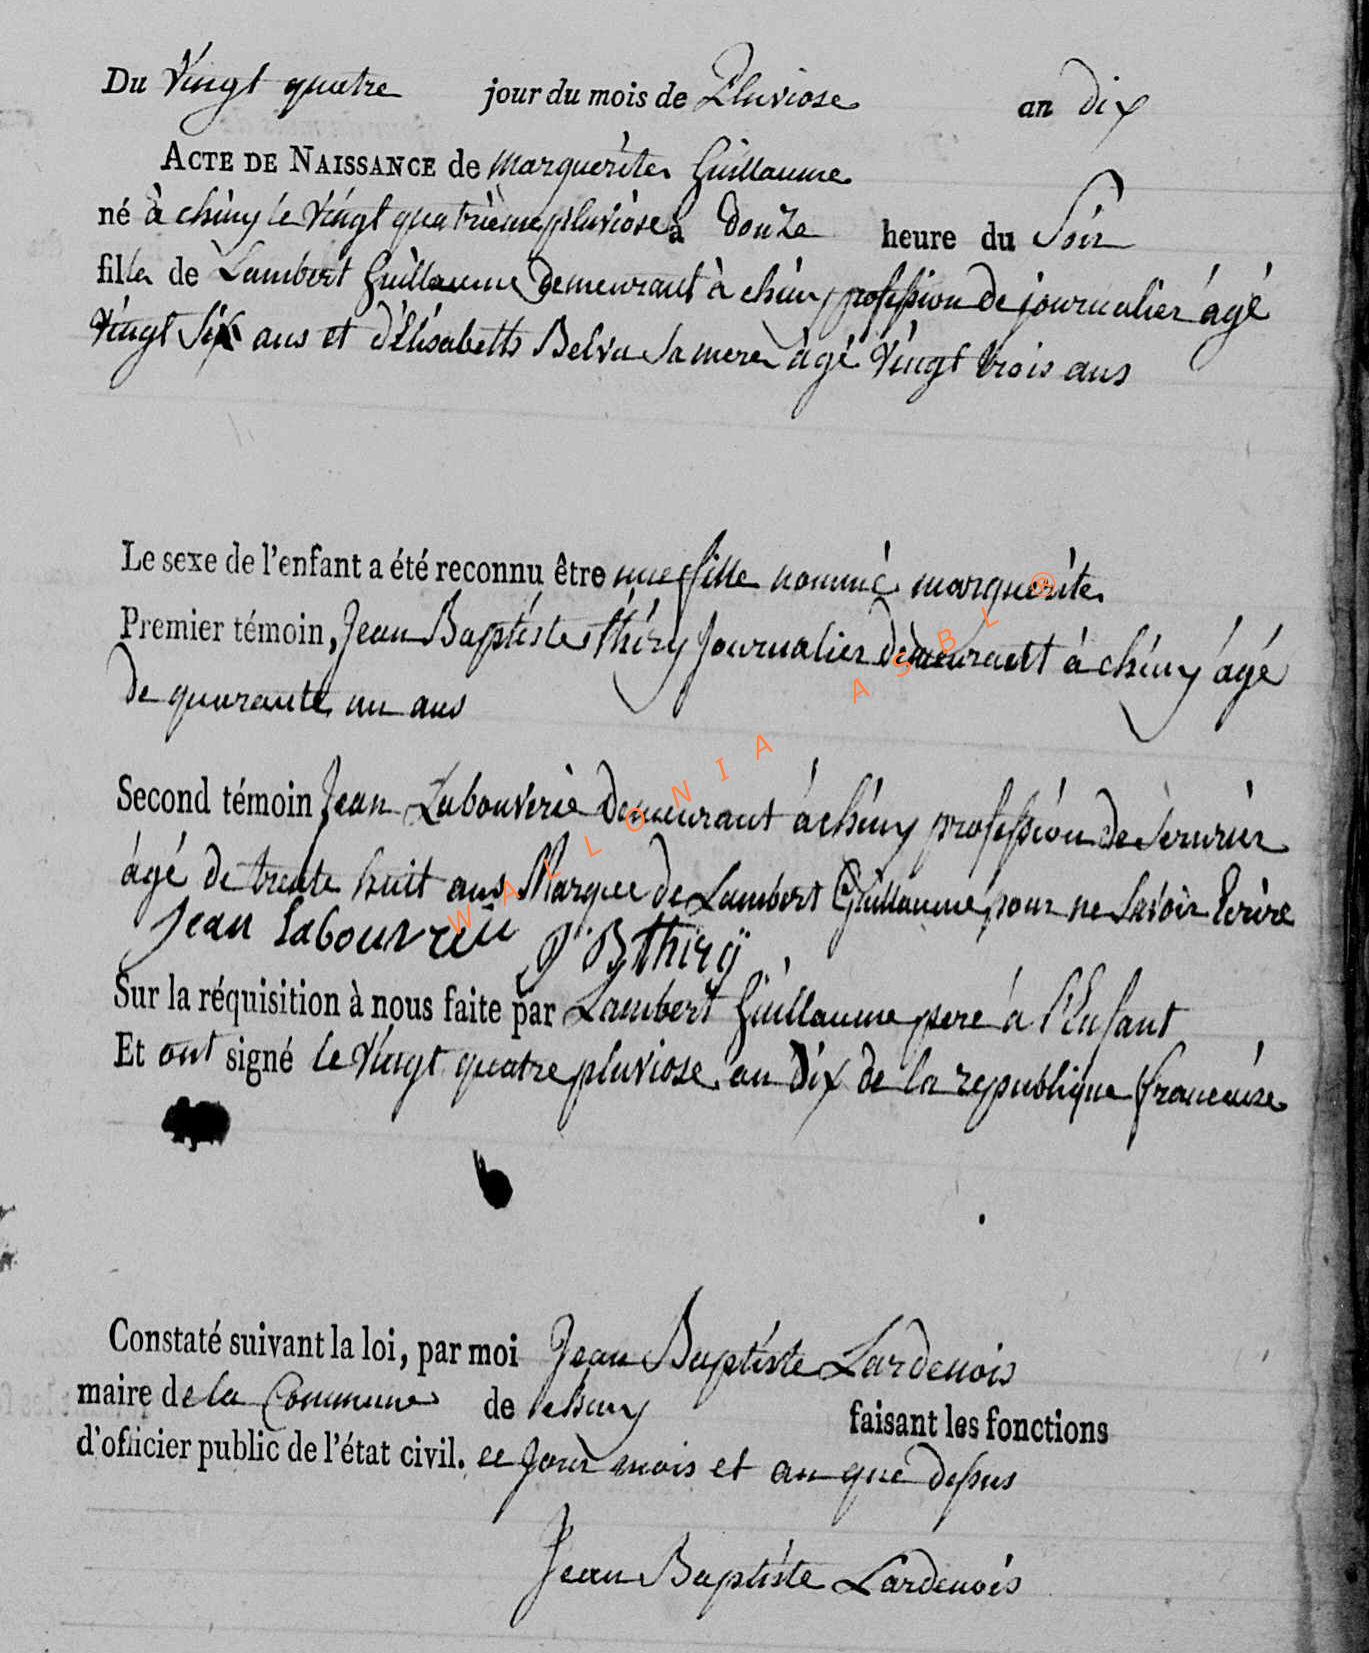 Du Vingt quatre jour du mois de Pluviose an dix
ACTE DE NAISSANCE de marguerite Guillaume
né à chiny le Vingt quatrième pluviose à douze heure du Soir
fille de Lambert Guillaume demeurant à chiny profession de journalier agé
Vingt Six ans et d'Elisabeth Belva Sa mere agé Vingt trois ans
Le sexe de l'enfant a été reconnu être une fille nommé marguerite
Premier témoin, Jean Baptiste thiry Journalier demeurant à chiny âgé
de quarante un ans
Second témoin Jean Labouverie demeurant à chiny profession de serurier
âgé de trente huit ans Marque de Lambert Guillaume pour ne Savoir Ecrire
Jean Labouverie J B thirÿ
Sur la réquisition à nous faite par Lambert Guillaume pere à l'Enfant
Et ont signé le Vingt quatre pluviose an dix de la republique francaise
Constaté suivant la loi, par moi Jean Baptiste Lardenois
maire de la Commune de chiny faisant les fonctions
d'officier public de l'état civil. ce Jour mois et an que dessus
Jean Baptiste Lardenois
WALLONIA ASBL ®